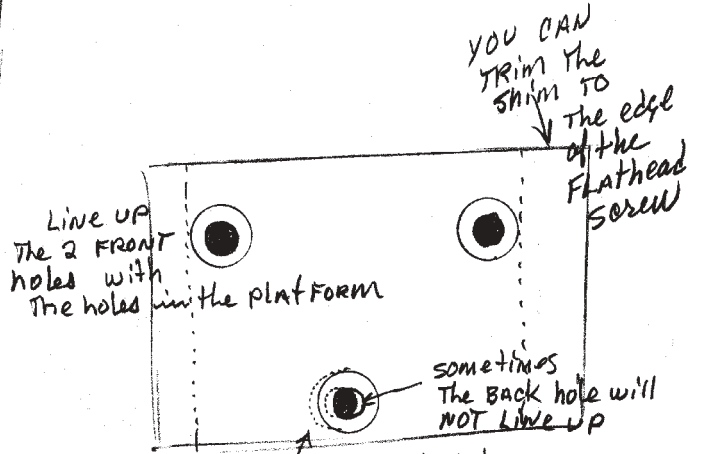 YOU CAN
TRIM The
Shim TO
The edge
of the
FLAThead
screw
Line UP
The 2 FRONT
holes with
The holes in the PlATFORM
sometimes
The BACK hole will
NOT Line UP